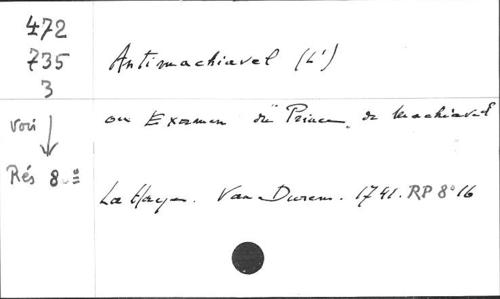 472
735
3
Antimachiavel (L')
voir
ou Examen du Prince de Machiavel
Rés 8°
La Haye. Van Duren. 1741. RP 8° 16